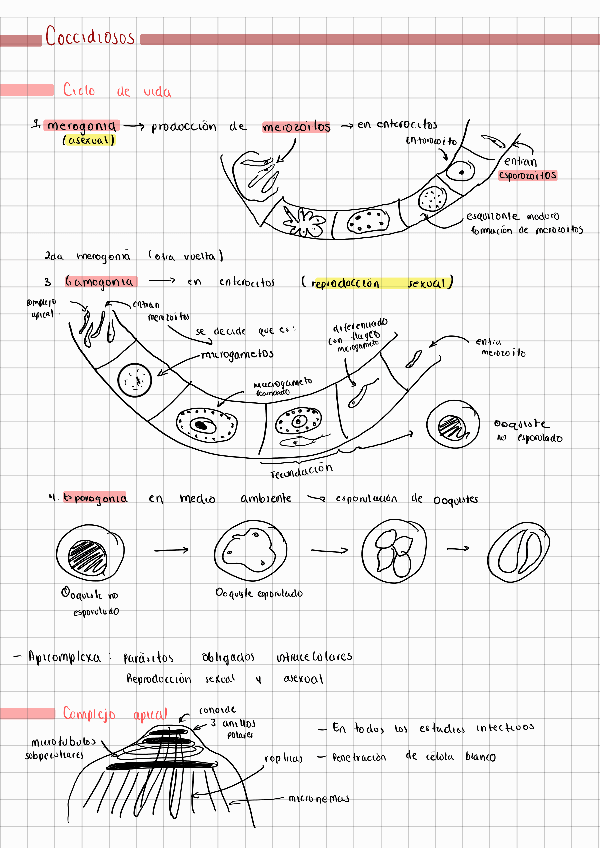 Coccidiosos
Ciclo de vida
1. merogonia → producción de merozoitos → en enterocitos
(asexual)
entran
esporozoitos
esquizonte maduro
formación de merozoitos
2da merogonia (otra vuelta)
3 Gamogonia → en enterocitos (reproducción sexual)
complejo
apical
entran
merozoitos
se decide que es:
microgametos
diferenciado
con flagelo
microgameto
entra
merozoito
macrogameto
fecundación
ooquiste
no esporulado
4. Esporogonia en medio ambiente → esporulación de ooquistes
Ooquiste no
esporulado
Ooquiste esporulado
- Apicomplexa: parásitos obligados intracelulares
Reproducción sexual y asexual
Complejo apical
conoide
3 anillos
polares
microtubulos
- En todos los estadios infectivos
roptrias - Penetración de celula blanco
micronemas